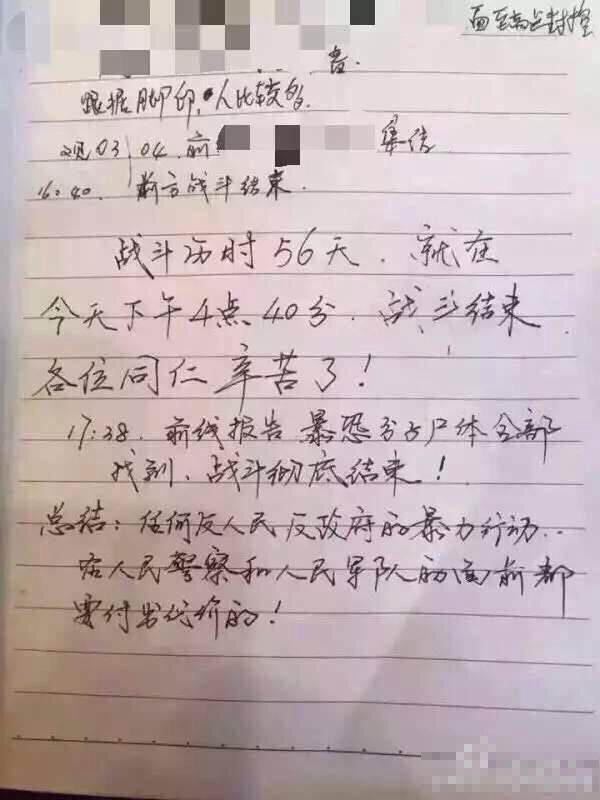 面至高点封控
者.
跟据脚印,人比较多.
观03 04.前 集结
16:40. 前方战斗结束.
战斗历时56天.就在
今天下午4点40分.战斗结束.
各位同仁辛苦了!
17:38.前线报告暴恐分子尸体全部
找到、战斗彻底结束!
总结:任何反人民反政府的暴力行动..
在人民警察和人民军队的面前都
要付出代价的!